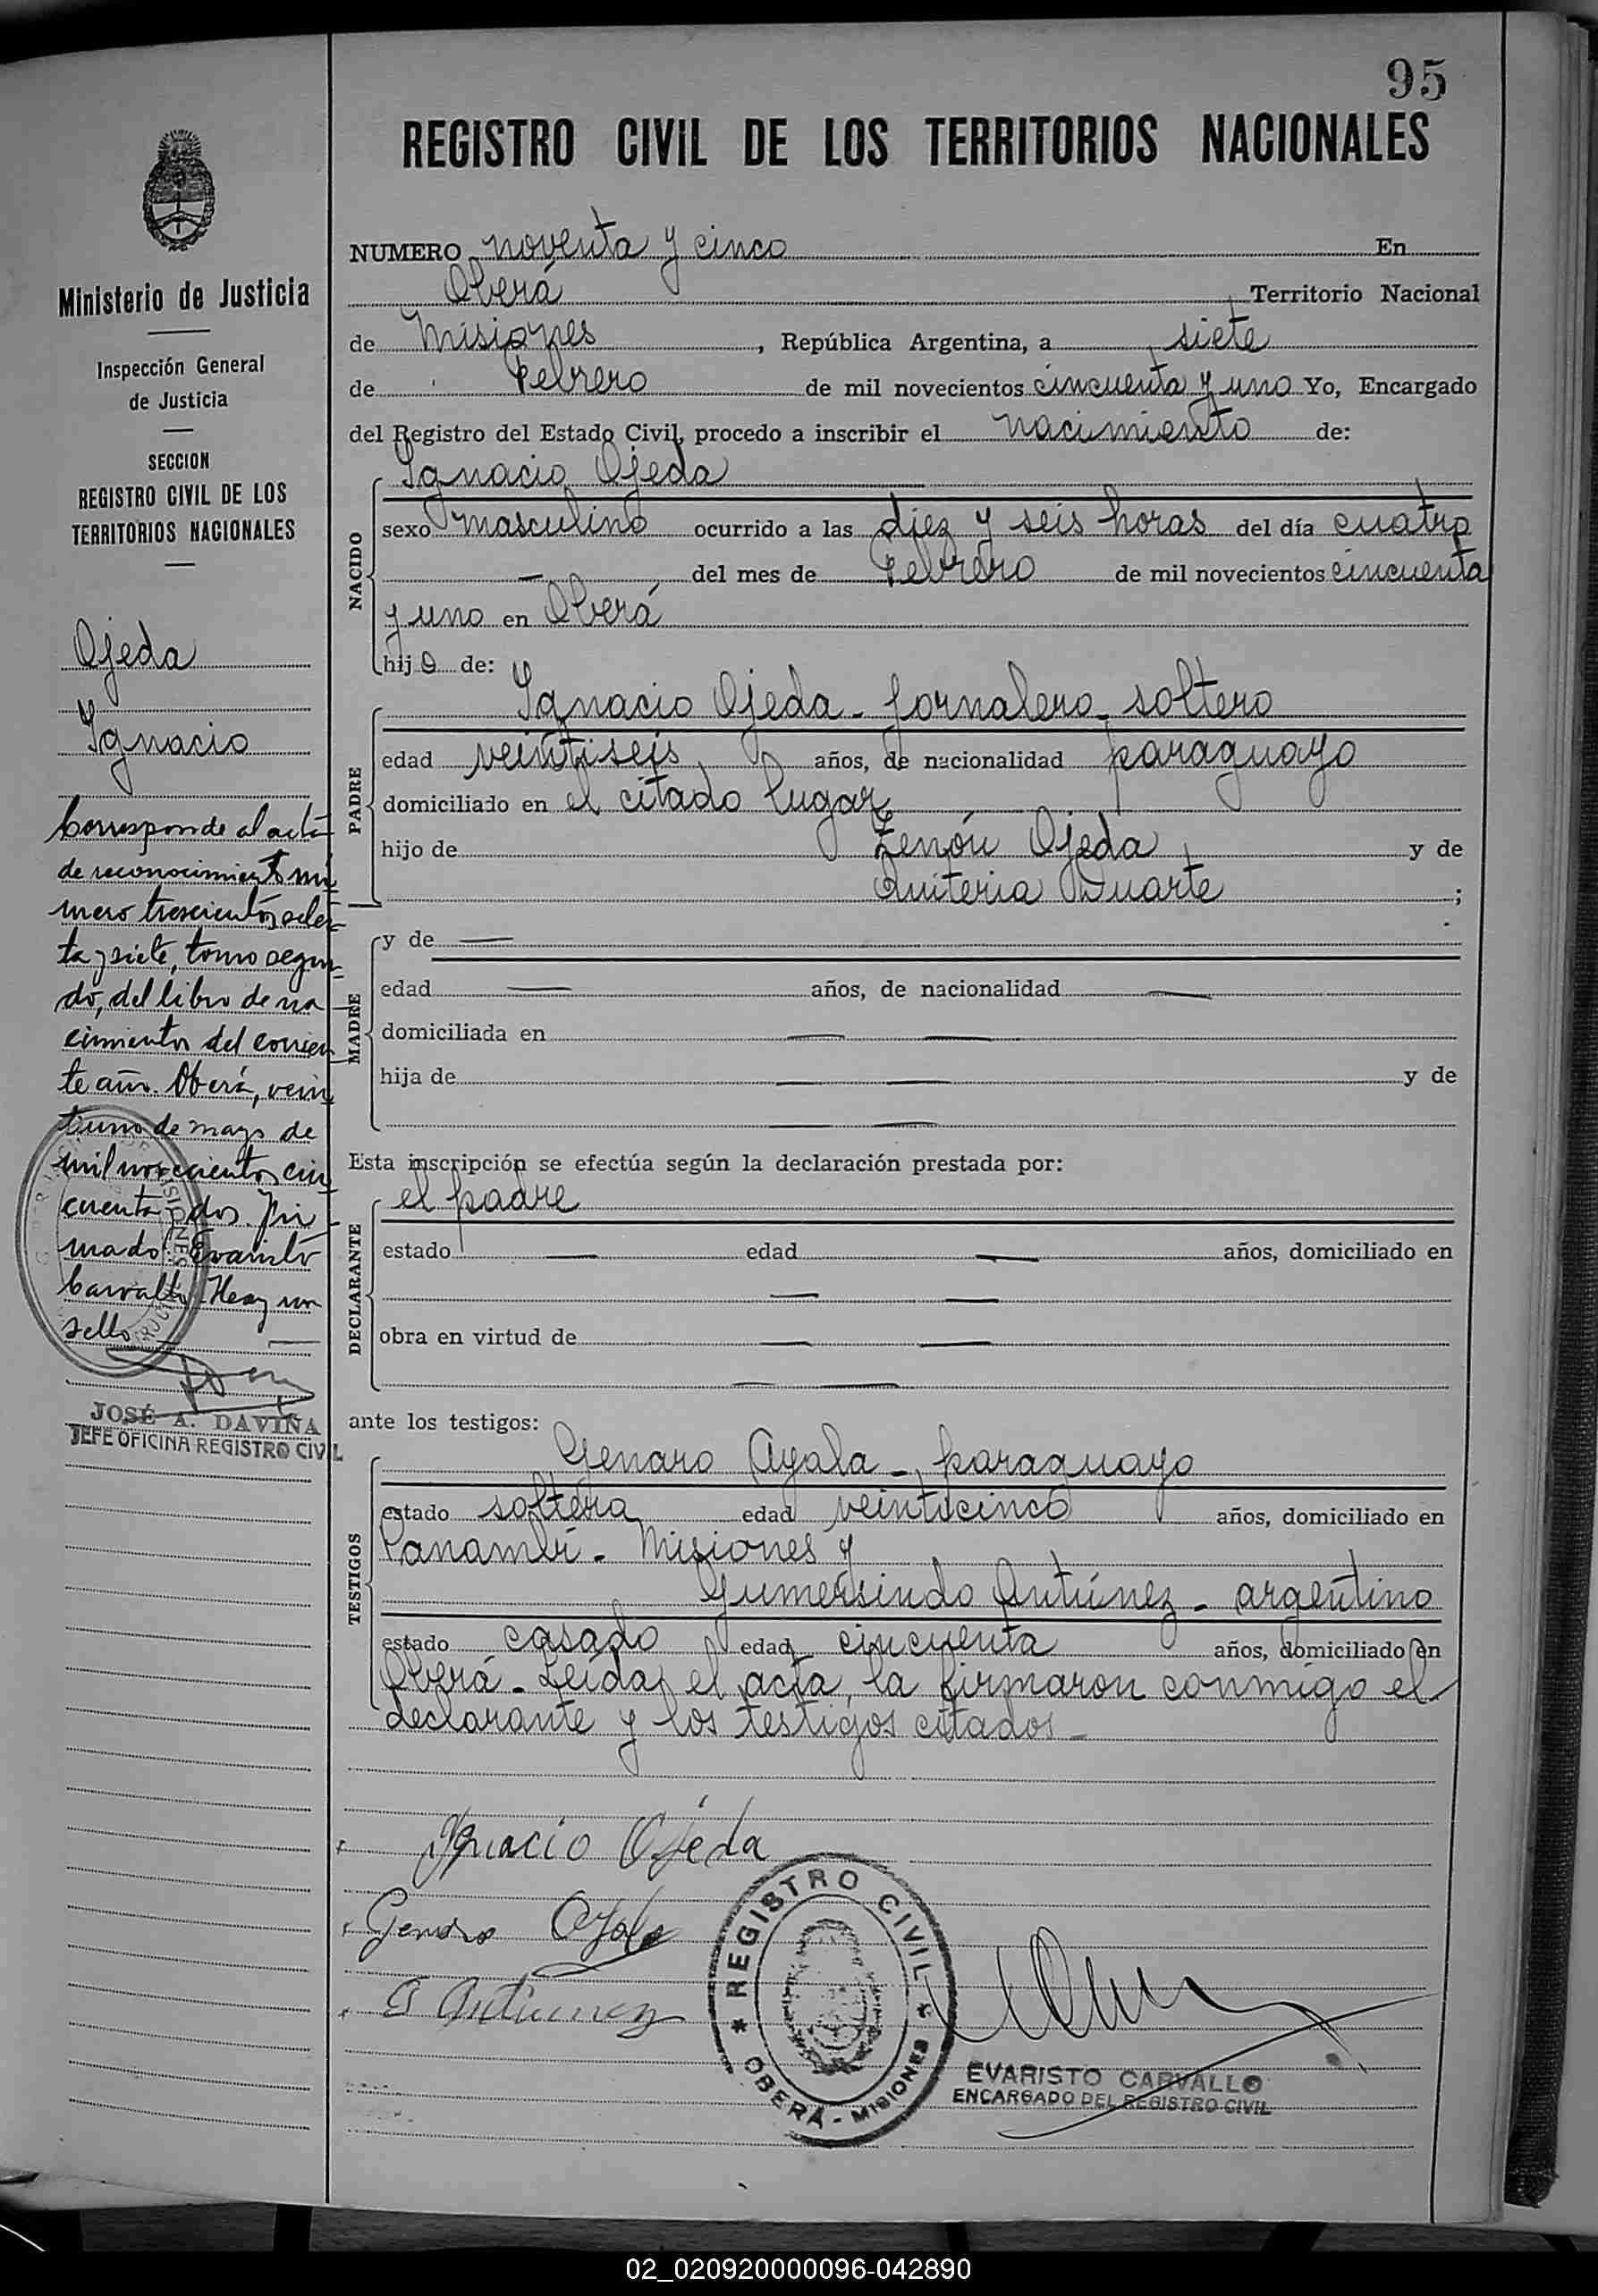 95
REGISTRO CIVIL DE LOS TERRITORIOS NACIONALES
Ministerio de Justicia
Inspección General
de Justicia
SECCION
REGISTRO CIVIL DE LOS
TERRITORIOS NACIONALES
Ojeda
Ignacio
Corresponde al acta
de reconocimiento nú
mero trescientos ochen
ta y siete, tomo segun
do, del libro de na
cimientos del corrien
te año. Oberá, vein
tiuno de mayo de
mil novecientos cin
cuenta y dos. Fir
mado: Evaristo
Carvallo. Hay un
sello
JOSÉ A. DAVIÑA
JEFE OFICINA REGISTRO CIVIL
NUMERO noventa y cinco En
Oberá Territorio Nacional
de Misiones, República Argentina, a siete
de Febrero de mil novecientos cincuenta y uno Yo, Encargado
del Registro del Estado Civil, procedo a inscribir el nacimiento de:
NACIDO
Ignacio Ojeda
sexo masculino ocurrido a las diez y seis horas del día cuatro
— del mes de Febrero de mil novecientos cincuenta
y uno en Oberá
hijo de:
PADRE
Ignacio Ojeda - jornalero - soltero
edad veintiseis años, de nacionalidad paraguayo
domiciliado en el citado lugar
hijo de Zenón Ojeda y de
Quiteria Duarte ;
MADRE
y de —
edad — años, de nacionalidad —
domiciliada en — —
hija de — — y de
— —
Esta inscripción se efectúa según la declaración prestada por:
DECLARANTE
el padre
estado — edad — años, domiciliado en
— —
obra en virtud de — —
— —
ante los testigos:
TESTIGOS
Genaro Ayala - paraguayo
estado soltero edad veinticinco años, domiciliado en
Panambí - Misiones y
Gumersindo Antúnez - argentino
estado casado edad cincuenta años, domiciliado en
Oberá - Leída el acta, la firmaron conmigo el
declarante y los testigos citados -
Ignacio Ojeda
Genaro Ayala
G Antunez
REGISTRO CIVIL
OBERÁ - MISIONES
EVARISTO CARVALLO
ENCARGADO DEL REGISTRO CIVIL
02_020920000096-042890